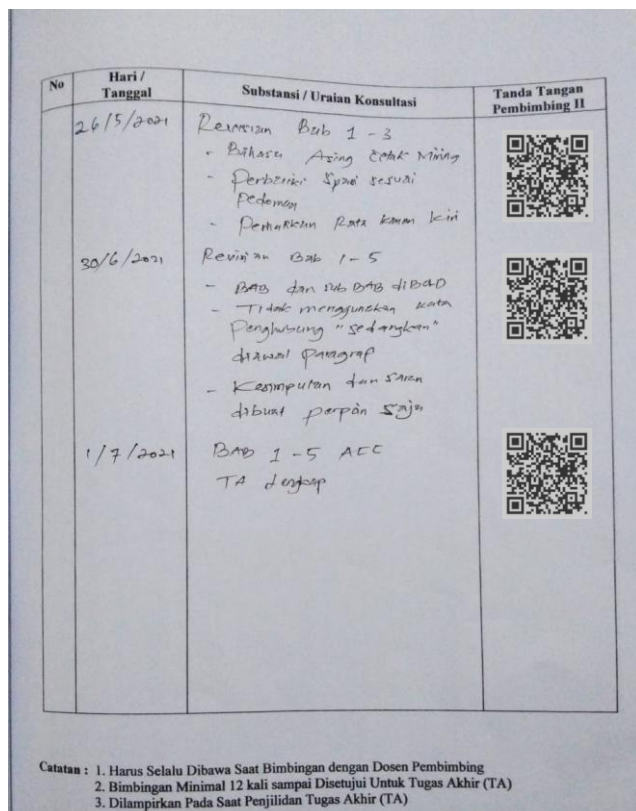 No
Hari /
Tanggal
Substansi / Uraian Konsultasi
Tanda Tangan
Pembimbing II
26/5/2021
Revisian Bab 1 - 3
- Bahasa Asing Cetak Miring
- Perbaiki Spasi sesuai
Pedoman
- Perhatikan Rata kanan kiri
30/6/2021
Revisian Bab 1 - 5
- BAB dan sub BAB diBOLD
- Tidak menggunakan kata
Penghubung "sedangkan"
diawal Paragraf
- Kesimpulan dan saran
dibuat perpoin saja
1/7/2021
BAB 1 - 5 ACC
TA lengkap
Catatan : 1. Harus Selalu Dibawa Saat Bimbingan dengan Dosen Pembimbing
2. Bimbingan Minimal 12 kali sampai Disetujui Untuk Tugas Akhir (TA)
3. Dilampirkan Pada Saat Penjilidan Tugas Akhir (TA)